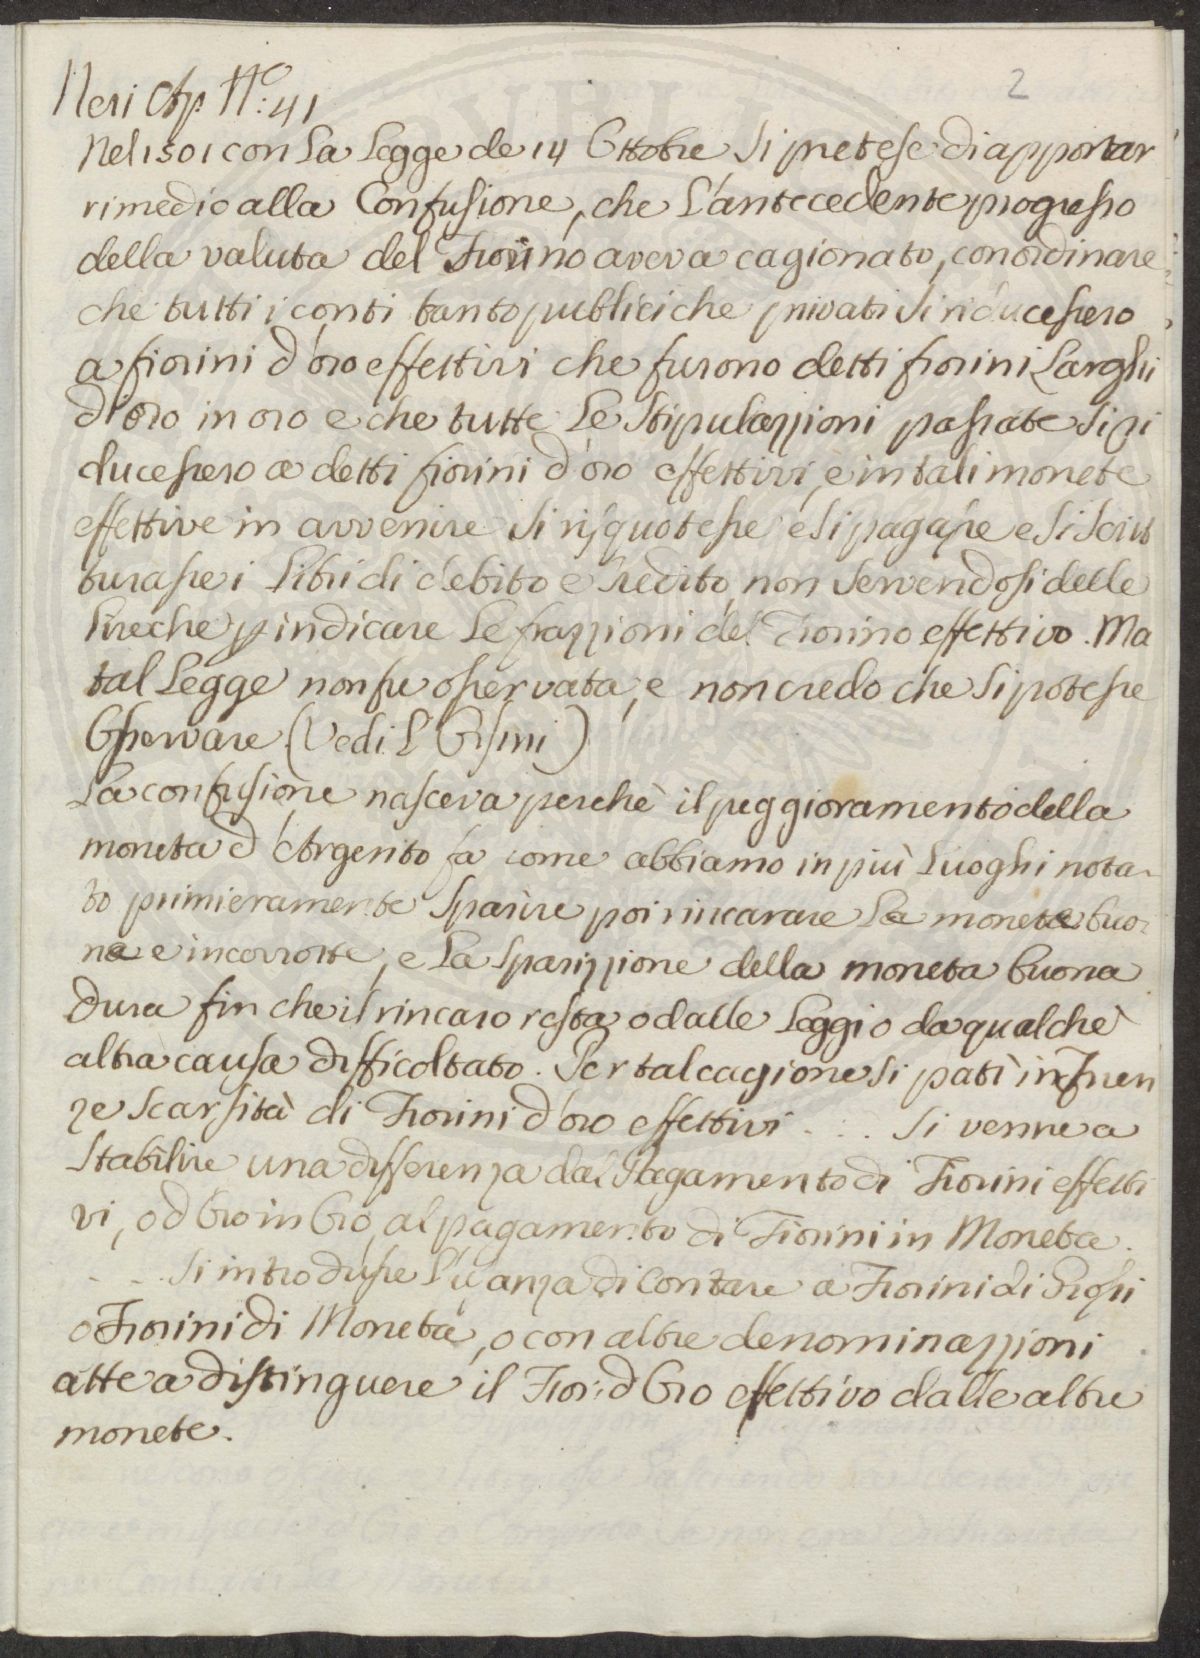 2
Neri Ap. No: 41
Nel 1501 con La Legge de 14 Ottobre Si pretese di apportar
rimedio alla Confusione, che L'antecedente progresso
della valuta del Fiorino aveva cagionato, con ordinare
che tutti i conti tanto publici che privati Si riducessero
a fiorini d'oro effettivi che furono detti fiorini Larghi
d'oro in oro e che tutte Le Stipulazzioni passate Si ri
ducessero a detti fiorini d'oro effettivi, e in tali monete
effettive in avvenire Si risquotesse e Si pagasse e Si Scrit
turasse i Libri di debito e Credito, non Servendosi delle
Lire che p indicare Le frazzioni del Fiorino effettivo. Ma
tal Legge non fu osservata, e non credo che Si potesse
Osservare (Vedi L'Orsini)
La confusione nasceva perchè il peggioramento della
moneta d'Argento fa come abbiamo in più Luoghi nota-
to primieramente Sparire poi rincarare La moneta buo-
na e incorrotte, e La Sparizzione della moneta buona
Dura fin che il rincaro resta o dalle Leggi o da qualche
altra causa difficoltato. Per tal cagione Si patì in Firen
ze Scarsità di Fiorini d'oro effettivi . . . Si venne a
Stabilire una differenza dal Pagamento di Fiorini effetti
vi, o d'Oro in Oro, al pagamento di Fiorini in Moneta.
. . . Si introdusse L'usanza di Contare a Fiorini di Grossi
o Fiorini di Moneta, o con altre denominazzioni
atte a distinguere il Fior: d'Oro effettivo dalle altre
monete.